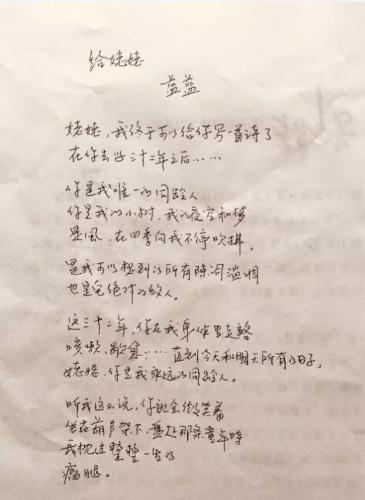 给姥姥
蓝蓝
姥姥,我终于可以给你写一首诗了
在你去世三十二年之后……
你是我唯一的同龄人
你是我的小村,我的夜空和梦
是风,在四季向我不停吹拂。
是我可以想到的所有陈词滥调
也是它绝对的敌人。
这三十二年,你在我身体里走路
咳嗽,歇息……直到今天和明天所有的日子,
姥姥,你是我永远的同龄人。
听我这么说,你就会微笑着
坐在葫芦架下,盘起那条童年时
我枕过整整一生的
瘸腿。